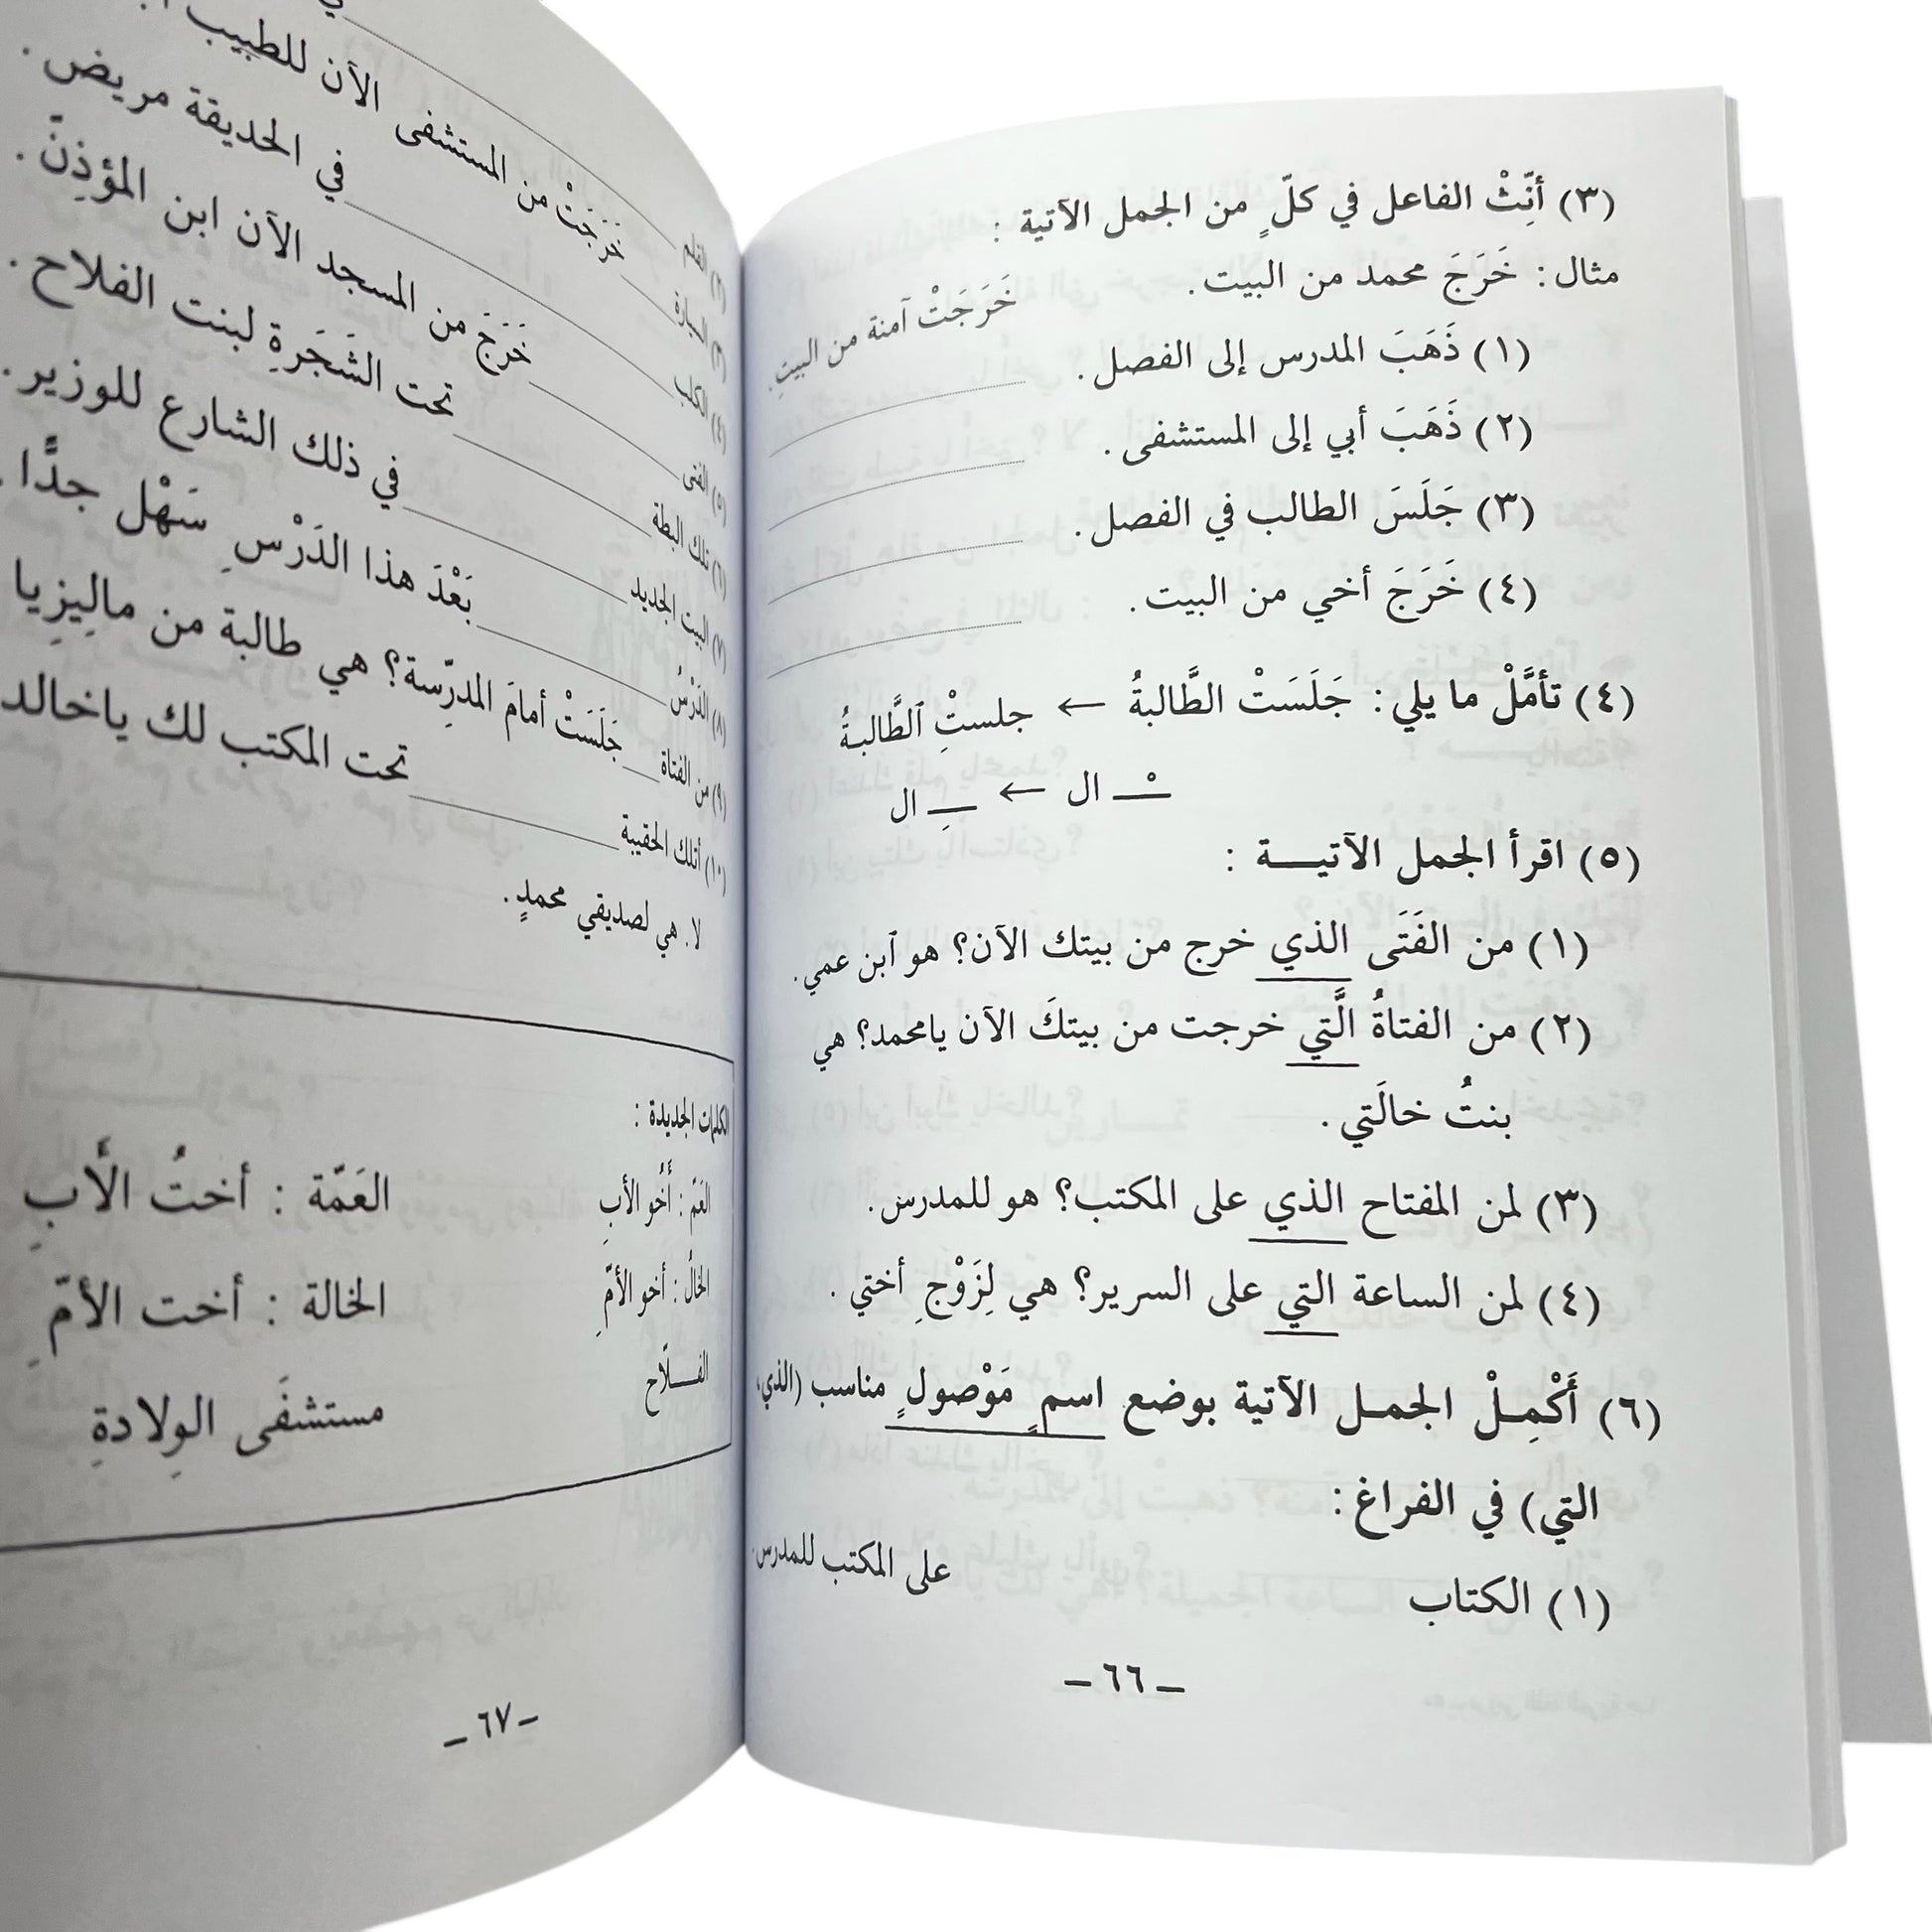 (٣) أنِّثْ الفاعل في كلّ من الجمل الآتية :
مثال : خَرَجَ محمد من البيت. خَرَجَتْ آمنة من البيتِ.
(١) ذَهَبَ المدرس إلى الفصل.
(٢) ذَهَبَ أبي إلى المستشفى.
(٣) جَلَسَ الطالب في الفصل.
(٤) خَرَجَ أخي من البيت.
(٤) تأمَّلْ ما يلي : جَلَسَتْ الطَّالبةُ ← جلستِ ٱلطَّالبةُ
ـْـ ال ← ـِـ ال
(٥) اقرأ الجمل الآتيـــة :
(١) من الفَتَى الذي خرج من بيتك الآن؟ هو ٱبن عمي.
(٢) من الفتاةُ الَّتي خرجت من بيتكَ الآن يامحمد؟ هي
بنتُ خالَتي .
(٣) لمن المفتاح الذي على المكتب؟ هو للمدرس.
(٤) لمن الساعة التي على السرير؟ هي لِزَوْجِ أختي .
(٦) أَكْمِـلْ الجمـل الآتية بوضع اسمٍ مَوْصولٍ مناسب (الذي،
التي) في الفراغ :
(١) الكتاب على المكتب للمدرس.
– ٦٦ –
(٢) القلم
(٣) السيارة خَرَجَتْ من المستشفى الآن للطبيب
(٤) الكلب في الحديقة مريض .
(٥) الفتى خَرَجَ من المسجد الآن ابن المؤذِنّ .
(٦) تلك البطة تحت الشَجَرةِ لبنت الفلاح .
(٧) البيت الجديد في ذلك الشارع للوزير .
(٨) الدَرْسُ بَعْدَ هذا الدَرْسِ سَهْل جدًّا .
(٩) من الفتاة جَلَسَتْ أمامَ المدرّسة؟ هي طالبة من مالِيزِيا
(١٠) أتلك الحقيبة تحت المكتب لك ياخالد
لا. هي لصديقي محمدٍ .
الكلمات الجديدة :
العَمّ : أَخُو الأبِ العَمّة : أختُ الأَبِ
الخال : أخو الأمِّ الخالة : أخت الأمِّ
الفـــلّاح مستشفَى الوِلادةِ
– ٦٧ –